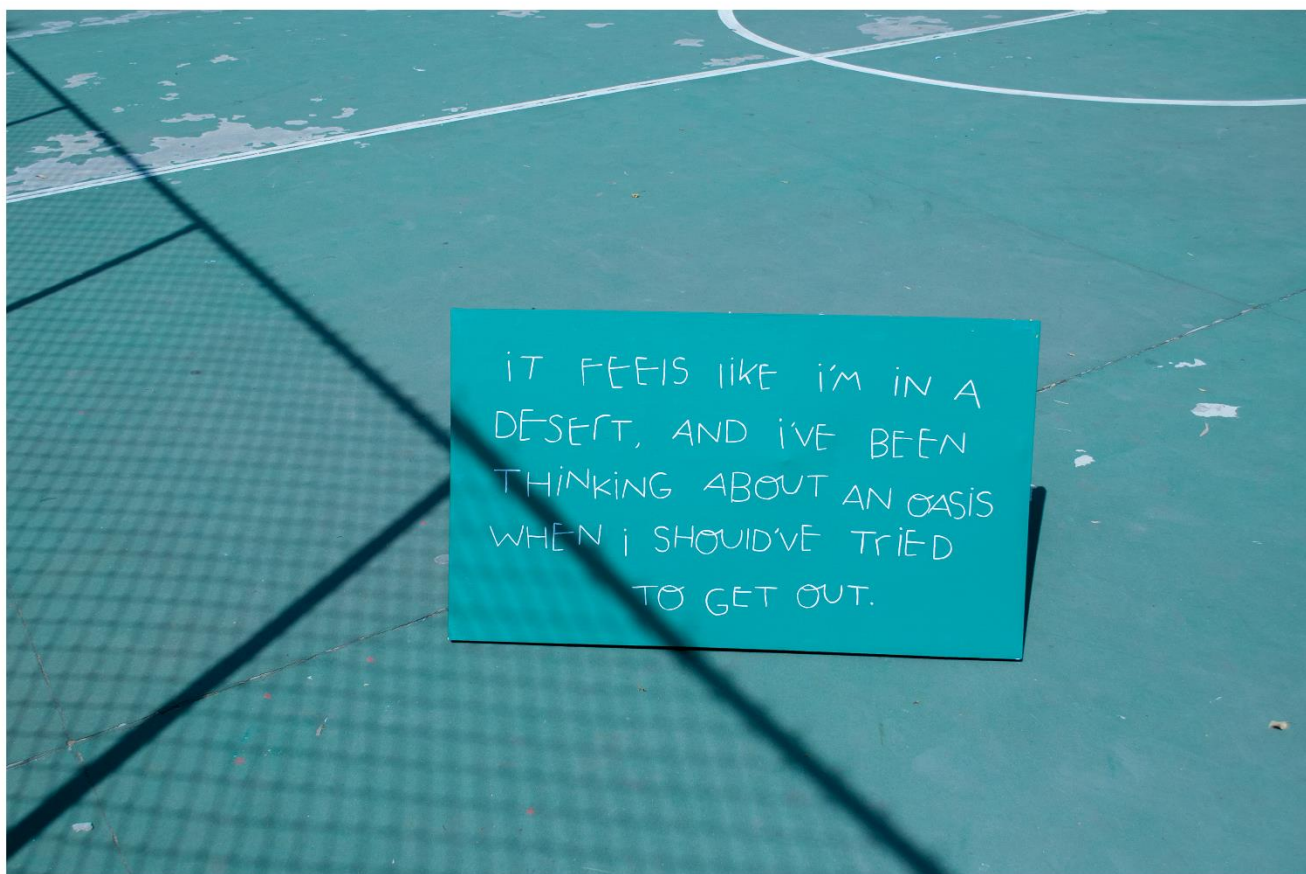 iT FEElS liKE i'M iN A
DESErT, AND i'VE BEEN
THiNKiNG ABOUT AN OASiS
WHEN i SHOUlD'VE TriED
TO GET OUT.